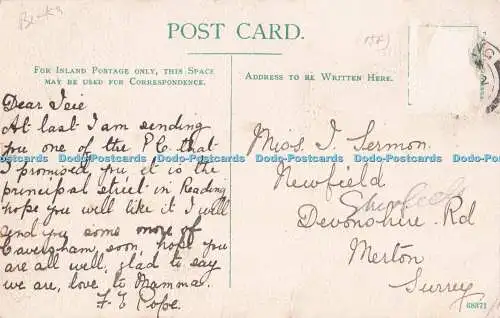 Berks
POST CARD.
FOR INLAND POSTAGE ONLY, THIS SPACE
MAY BE USED FOR CORRESPONDENCE.
ADDRESS TO BE WRITTEN HERE.
Dear
At last I am sending
you one of the P.C. that
I promised you it is the
principal street in Reading
hope you will like it I will
send you some more of
Caversham, soon, hope you
are all well, glad to say
we are, love to Mamma.
F. E Pope.
Miss I. Sermon.
Newfield
Devonshire Rd
Merton
Surrey
68371
Dodo-Postcards Dodo-Postcards Dodo-Postcards Dodo-Postcards Dodo-Postcards